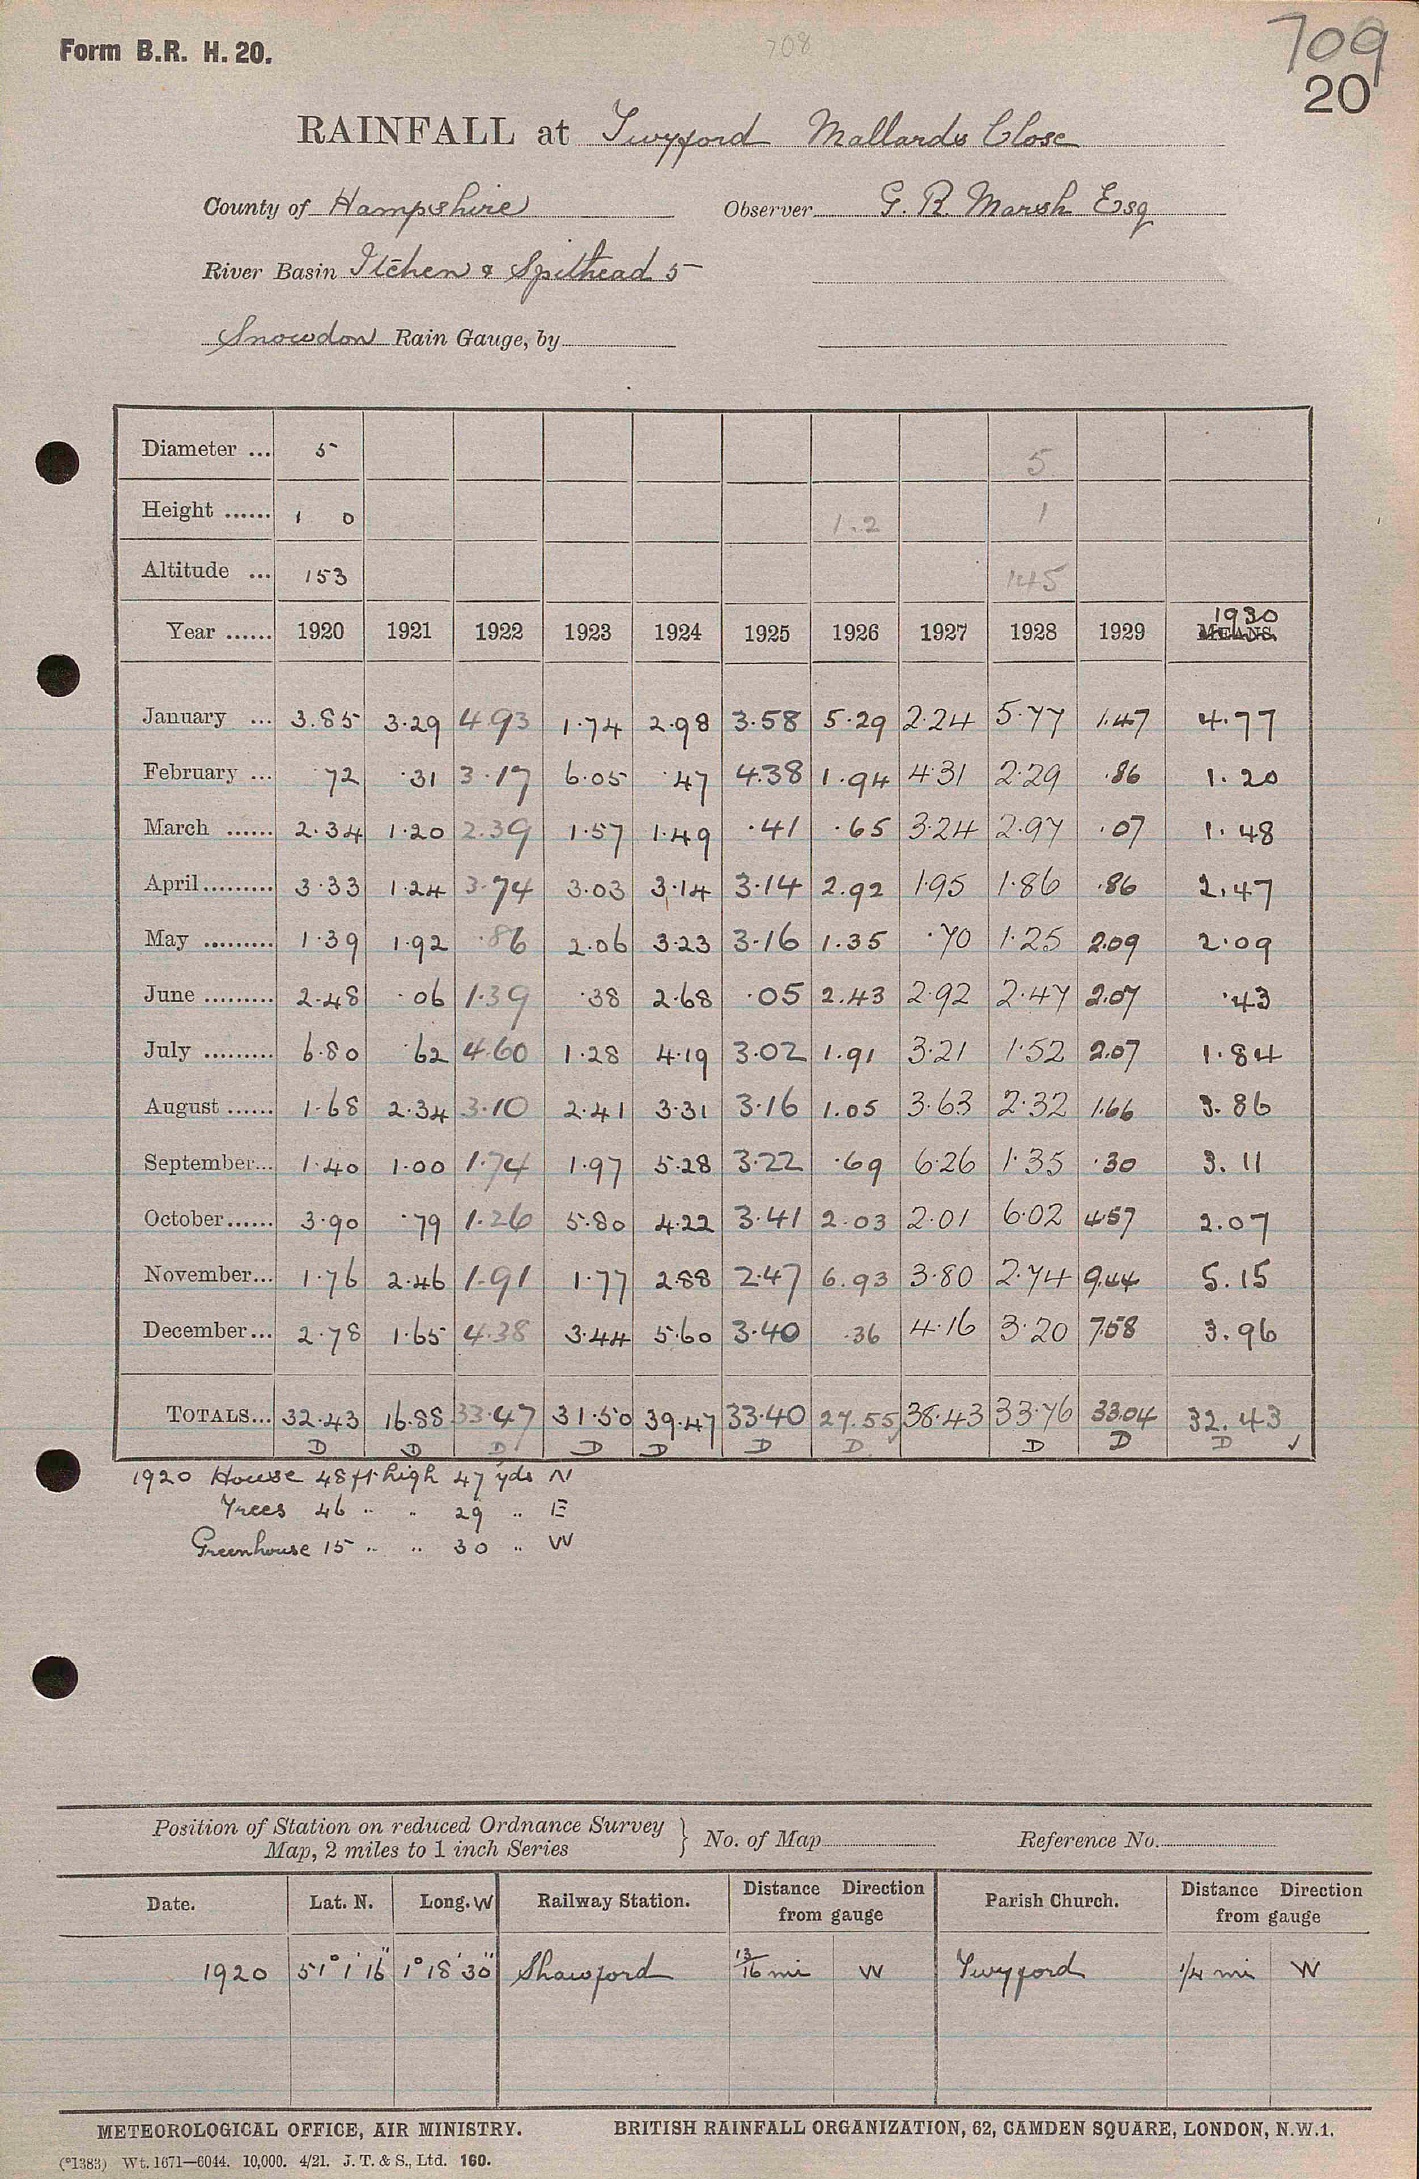 Form B.R. H. 20.
708
709
20
RAINFALL at Twyford Mallards Close
County of Hampshire Observer G. R. Marsh Esq
River Basin Itchen & Spithead 5
Snowdon Rain Gauge, by
Diameter ... 5 5
Height ...... 1 0 1.2 1
Altitude ... 153 145
Year ...... 1920 1921 1922 1923 1924 1925 1926 1927 1928 1929 1930 MEANS.
January ... 3.85 3.29 4.93 1.74 2.98 3.58 5.29 2.24 5.77 1.47 4.77
February ... .72 .31 3.17 6.05 .47 4.38 1.94 4.31 2.29 .86 1.20
March ...... 2.34 1.20 2.39 1.57 1.49 .41 .65 3.24 2.97 .07 1.48
April ......... 3.33 1.24 3.74 3.03 3.14 3.14 2.92 1.95 1.86 .86 2.47
May ......... 1.39 1.92 .86 2.06 3.23 3.16 1.35 .70 1.25 2.09 2.09
June ......... 2.48 .06 1.39 .38 2.68 .05 2.43 2.92 2.47 2.07 .43
July ......... 6.80 .62 4.60 1.28 4.19 3.02 1.91 3.21 1.52 2.07 1.84
August ...... 1.68 2.34 3.10 2.41 3.31 3.16 1.05 3.63 2.32 1.66 3.86
September... 1.40 1.00 1.74 1.97 5.28 3.22 .69 6.26 1.35 .30 3.11
October...... 3.90 .79 1.26 5.80 4.22 3.41 2.03 2.01 6.02 4.57 2.07
November... 1.76 2.46 1.91 1.77 2.88 2.47 6.93 3.80 2.74 9.44 5.15
December... 2.78 1.65 4.38 3.44 5.60 3.40 .36 4.16 3.20 7.58 3.96
TOTALS... 32.43 16.88 33.47 31.50 39.47 33.40 27.55 38.43 33.76 33.04 32.43
D D D D D D D D D D ✓
1920 House 48 ft high 47 yds N
Trees 46 " " 29 " E
Greenhouse 15 " " 30 " W
Position of Station on reduced Ordnance Survey
Map, 2 miles to 1 inch Series } No. of Map Reference No.
Date. Lat. N. Long. W Railway Station. Distance Direction from gauge Parish Church. Distance Direction from gauge
1920 51° 1' 16" 1° 18' 30" Shawford 13/16 mi W Twyford 1/4 mi W
METEOROLOGICAL OFFICE, AIR MINISTRY. BRITISH RAINFALL ORGANIZATION, 62, CAMDEN SQUARE, LONDON, N.W.1.
(*1383) Wt. 1671—6044. 10,000. 4/21. J. T. & S., Ltd. 160.